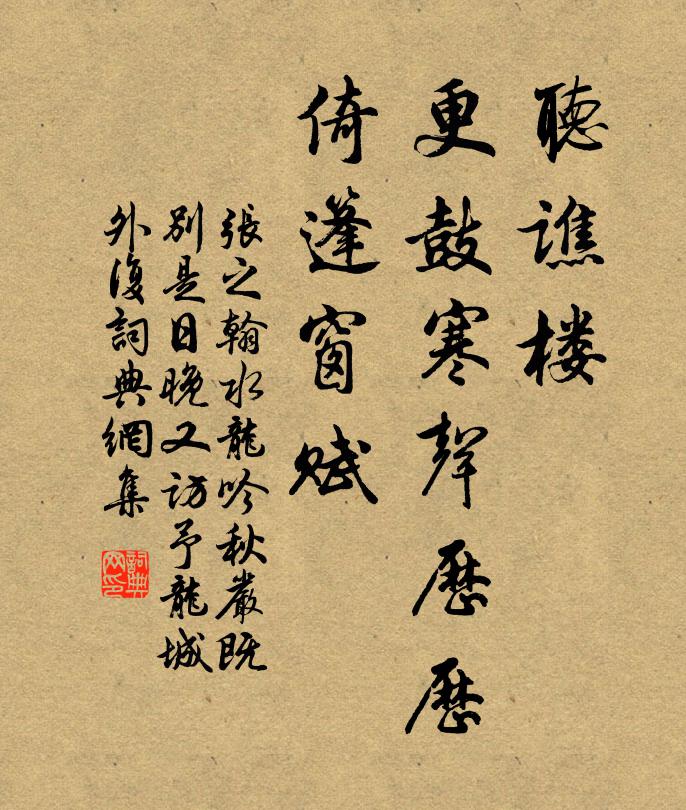 聽譙楼
更鼓寒聲歷歷
倚蓬窗賦
張之翰水龍吟秋巖既
別是日晚又訪予龍城
外復詞典網集
詞典
网印